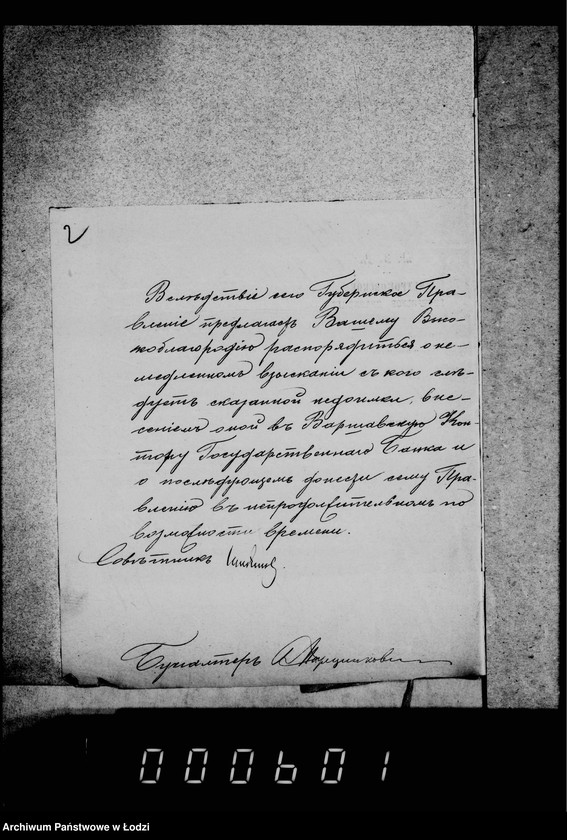 2
Вслѣдствіе сего Губернское Пра-
вленіе предлагаетъ Вашему Высо-
коблагородію распорядиться о не-
медленномъ взысканіи съ кого слѣ-
дуетъ сказанной недоимки, вне-
сеніемъ оной въ Варшавскую Кон-
тору Государственнаго Банка и
о послѣдующемъ донести сему Пра-
вленію въ непродолжительномъ по
возможности времени.
Совѣтникъ
Бухгалтеръ
000601
Archiwum Państwowe w Łodzi